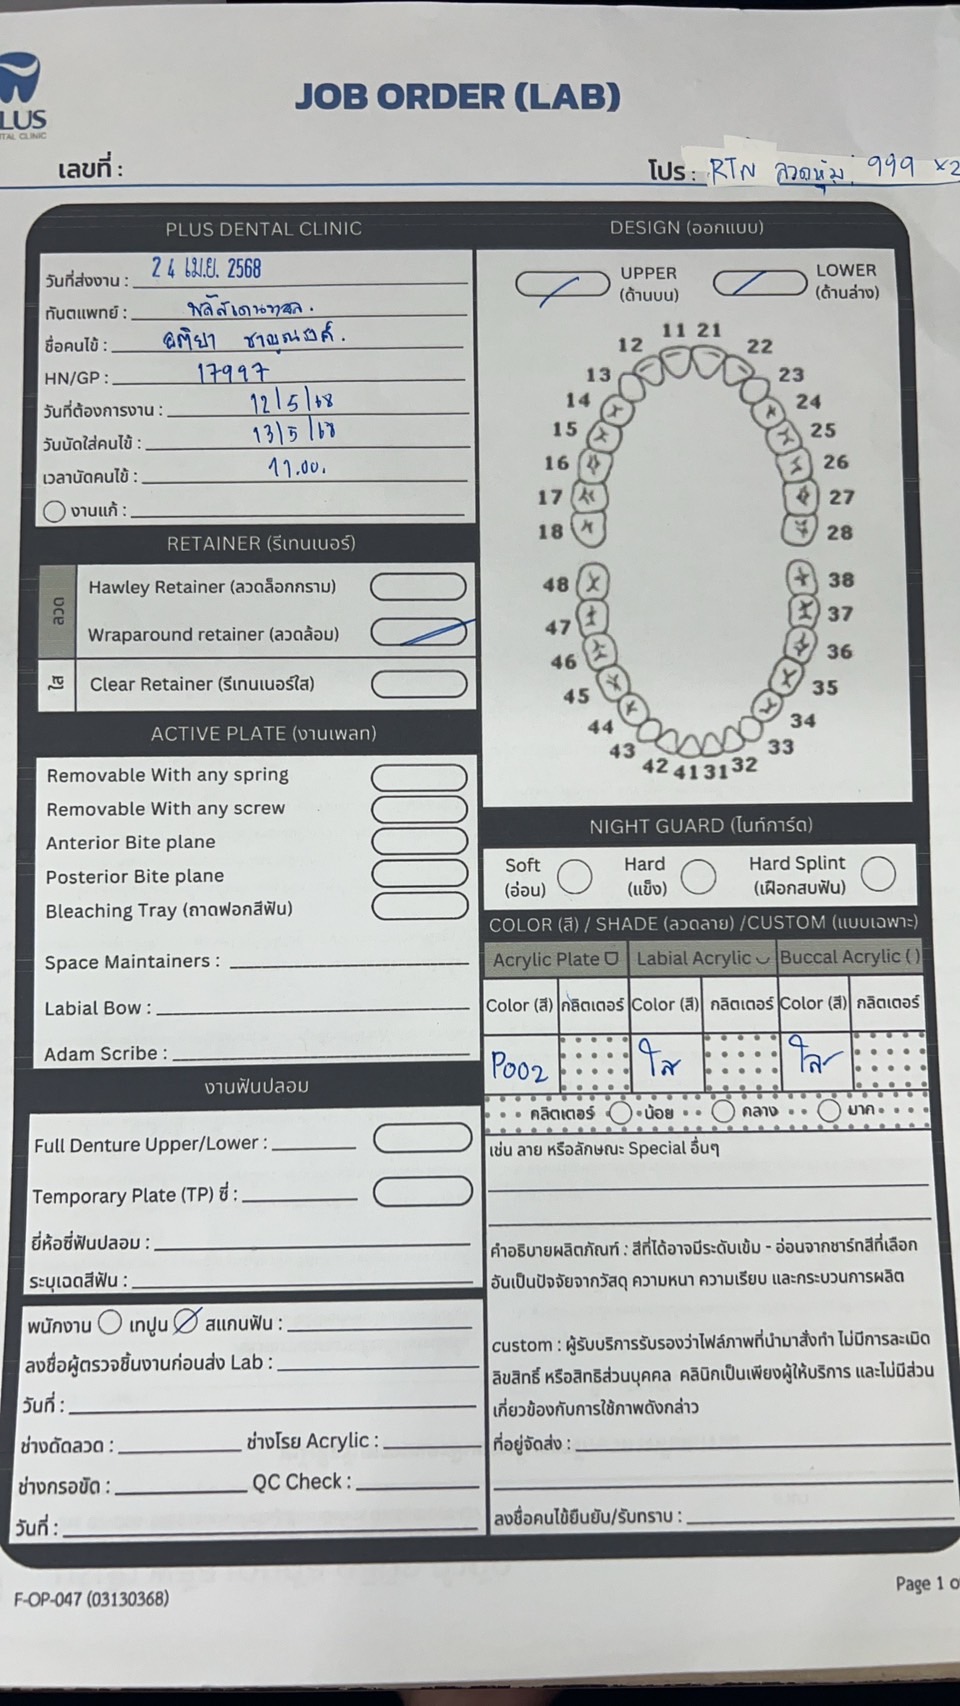 LUS
TAL CLINIC
JOB ORDER (LAB)
เลขที่ :
โปร : RTN ลวดหุ้ม 999 x2
PLUS DENTAL CLINIC
วันที่ส่งงาน : 24 เม.ย. 2568
ทันตแพทย์ : พลัสเดนทอล.
ชื่อคนไข้ :
HN/GP : 17997
วันที่ต้องการงาน : 12/5/68
วันนัดใส่คนไข้ : 13/5/68
เวลานัดคนไข้ : 11.00.
งานแก้ :
RETAINER (รีเทนเนอร์)
ลวด
Hawley Retainer (ลวดล็อกกราม)
Wraparound retainer (ลวดล้อม)
ใส
Clear Retainer (รีเทนเนอร์ใส)
ACTIVE PLATE (งานเพลท)
Removable With any spring
Removable With any screw
Anterior Bite plane
Posterior Bite plane
Bleaching Tray (ถาดฟอกสีฟัน)
Space Maintainers :
Labial Bow :
Adam Scribe :
งานฟันปลอม
Full Denture Upper/Lower :
Temporary Plate (TP) ซี่ :
ยี่ห้อซี่ฟันปลอม :
ระบุเฉดสีฟัน :
พนักงาน เทปูน สแกนฟัน :
ลงชื่อผู้ตรวจชิ้นงานก่อนส่ง Lab :
วันที่ :
ช่างดัดลวด : ช่างโรย Acrylic :
ช่างกรอขัด : QC Check :
วันที่ :
DESIGN (ออกแบบ)
UPPER
(ด้านบน)
LOWER
(ด้านล่าง)
11 21
12 22
13 23
14 24
15 25
16 26
17 27
18 28
48 38
47 37
46 36
45 35
44 34
43 33
42 41 31 32
NIGHT GUARD (ไนท์การ์ด)
Soft
(อ่อน)
Hard
(แข็ง)
Hard Splint
(เฝือกสบฟัน)
COLOR (สี) / SHADE (ลวดลาย) /CUSTOM (แบบเฉพาะ)
Acrylic Plate Labial Acrylic Buccal Acrylic ( )
Color (สี) กลิตเตอร์ Color (สี) กลิตเตอร์ Color (สี) กลิตเตอร์
P002 ใส ใส
กลิตเตอร์ น้อย กลาง มาก
เช่น ลาย หรือลักษณะ Special อื่นๆ
คำอธิบายผลิตภัณฑ์ : สีที่ได้อาจมีระดับเข้ม - อ่อนจากชาร์ทสีที่เลือก
อันเป็นปัจจัยจากวัสดุ ความหนา ความเรียบ และกระบวนการผลิต
custom : ผู้รับบริการรับรองว่าไฟล์ภาพที่นำมาสั่งทำ ไม่มีการละเมิด
ลิขสิทธิ์ หรือสิทธิส่วนบุคคล คลินิกเป็นเพียงผู้ให้บริการ และไม่มีส่วน
เกี่ยวข้องกับการใช้ภาพดังกล่าว
ที่อยู่จัดส่ง :
ลงชื่อคนไข้ยืนยัน/รับทราบ :
F-OP-047 (03130368)
Page 1 o